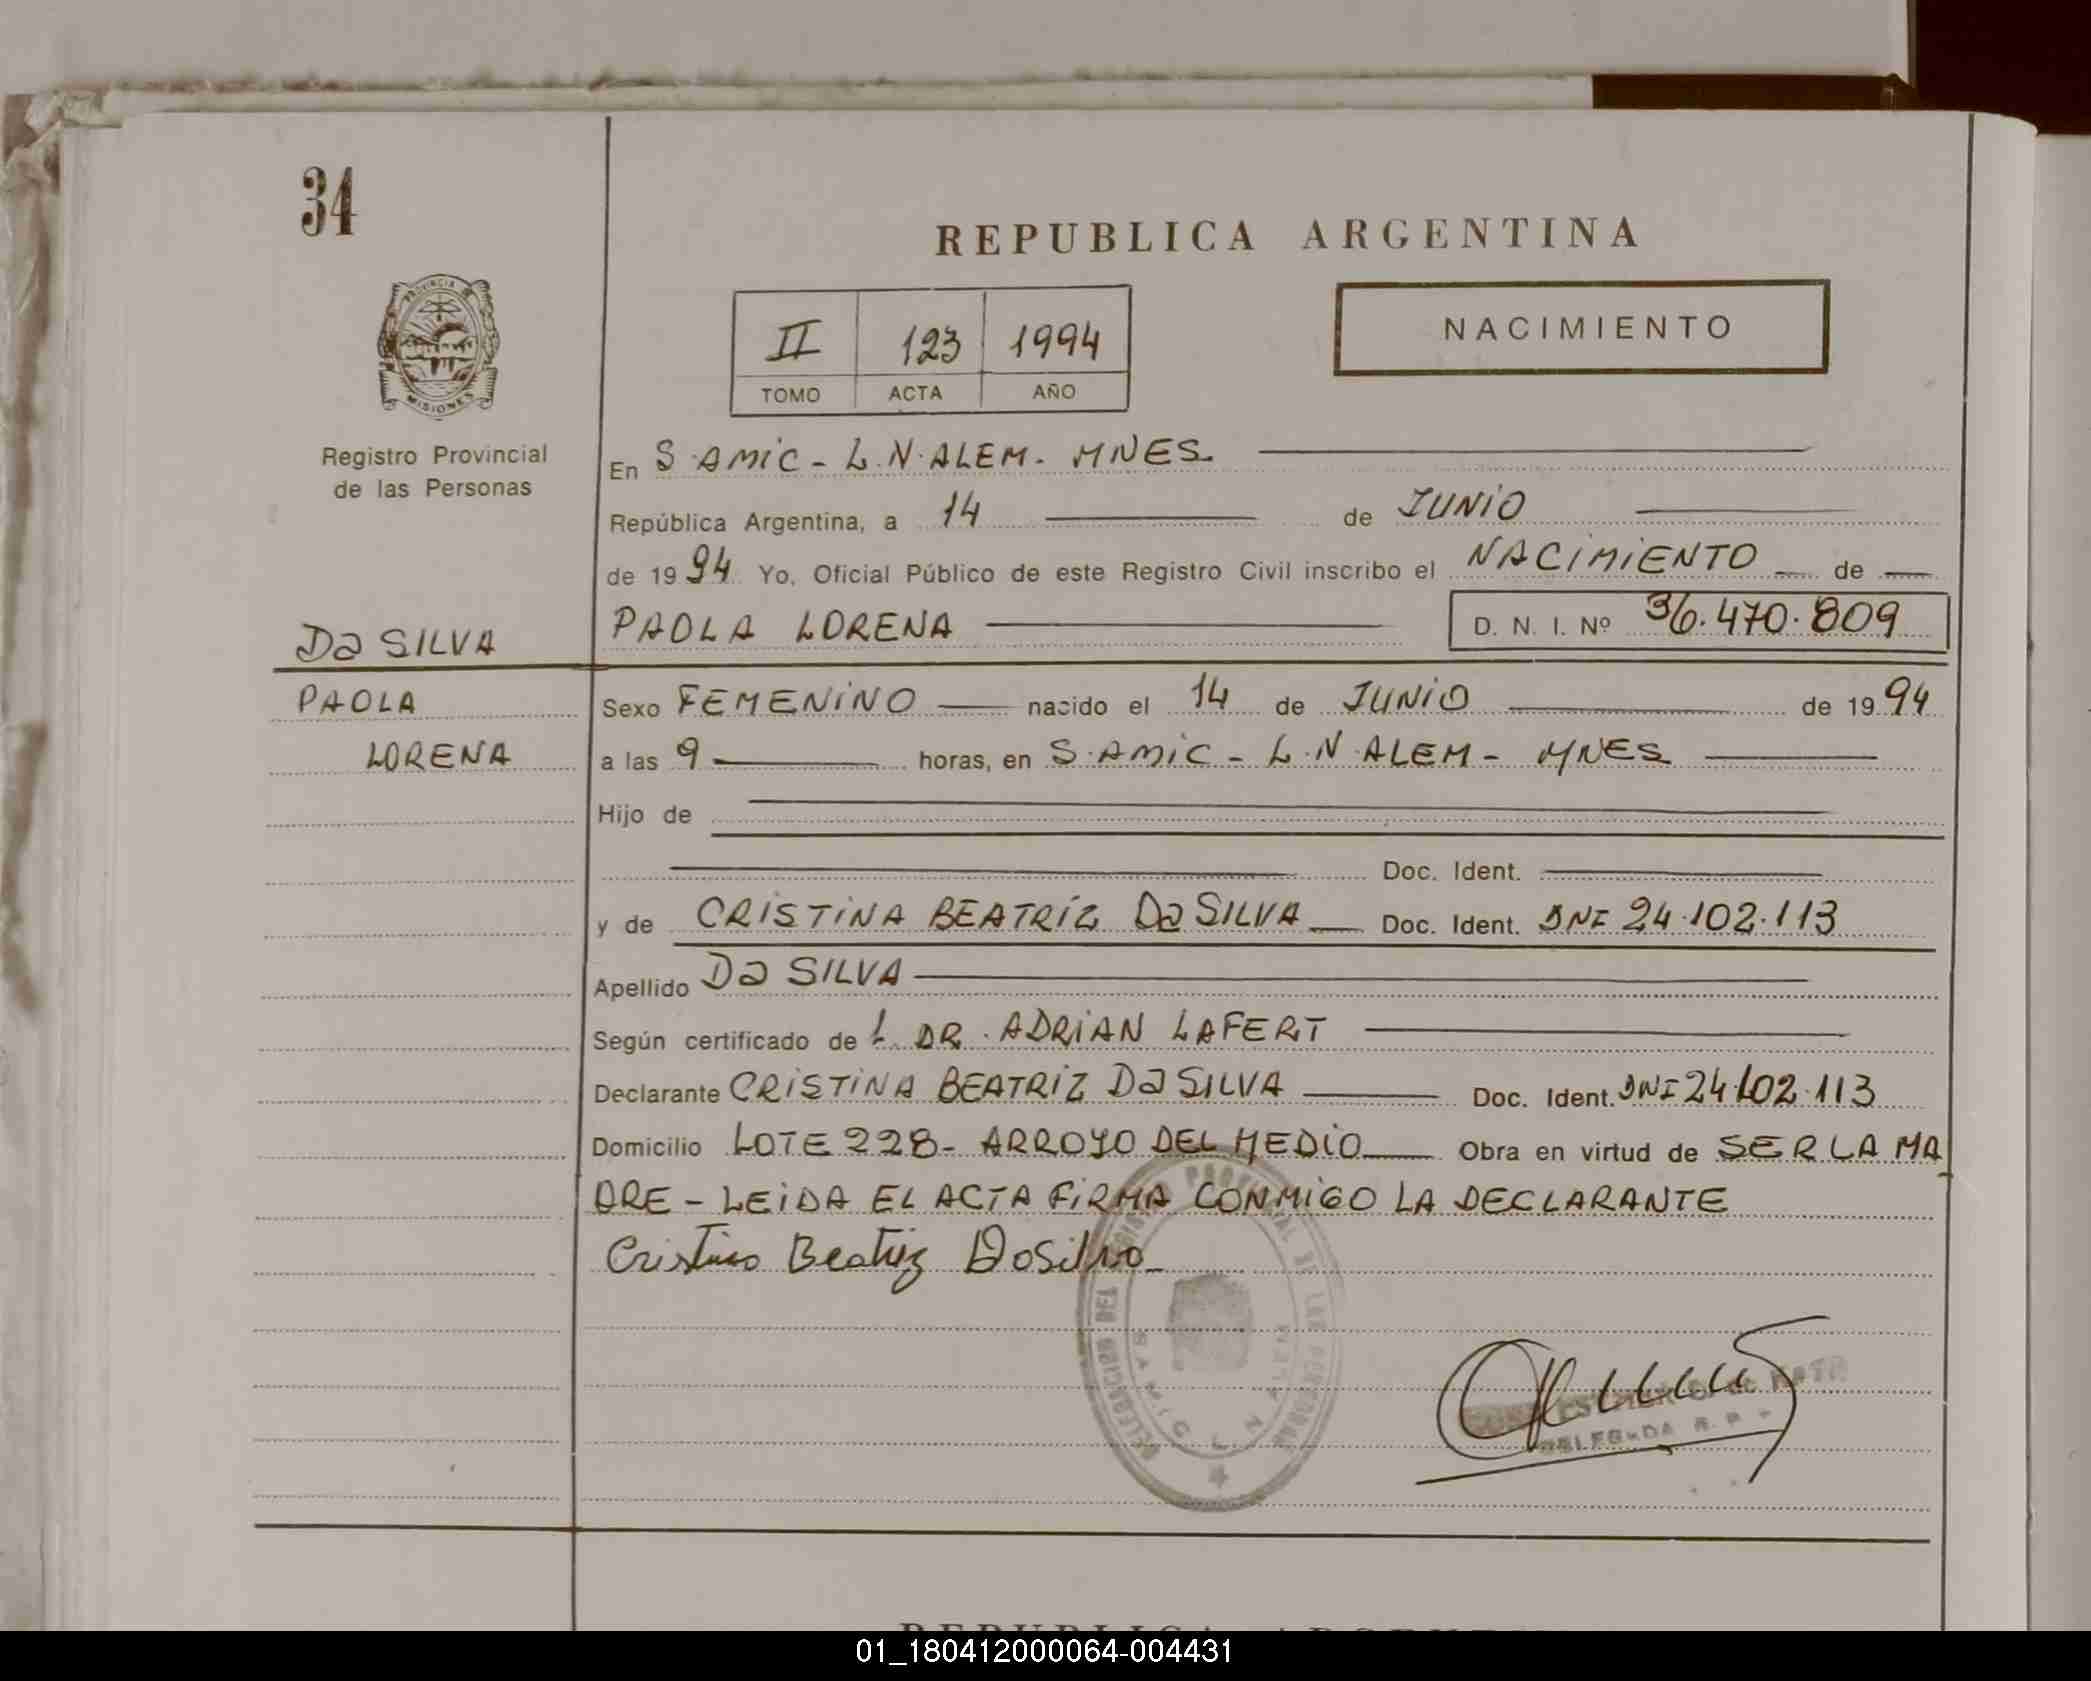 34
REPUBLICA ARGENTINA
PROVINCIA DE
MISIONES
II 123 1994
TOMO ACTA AÑO
NACIMIENTO
Registro Provincial
de las Personas
En S. AMIC - L.N. ALEM - MNES.
República Argentina, a 14 de JUNIO
de 1994 Yo, Oficial Público de este Registro Civil inscribo el NACIMIENTO de
DA SILVA
PAOLA LORENA D. N. I. Nº 36.470.809
PAOLA
LORENA
Sexo FEMENINO nacido el 14 de JUNIO de 1994
a las 9 horas, en S. AMIC - L.N. ALEM - MNES
Hijo de
Doc. Ident.
y de CRISTINA BEATRIZ DA SILVA Doc. Ident. DNI 24.102.113
Apellido DA SILVA
Según certificado de l DR. ADRIAN LAFERT
Declarante CRISTINA BEATRIZ DA SILVA Doc. Ident. DNI 24.102.113
Domicilio LOTE 228 - ARROYO DEL MEDIO Obra en virtud de SER LA MA
DRE - LEIDA EL ACTA FIRMA CONMIGO LA DECLARANTE
Cristina Beatriz DaSilva
DELEGACION DEL REGISTRO PROVINCIAL DE LAS PERSONAS
S. AMIC L. N. ALEM
DELEGADA R. P.
REPUBLICA ARGENTINA
01_180412000064-004431